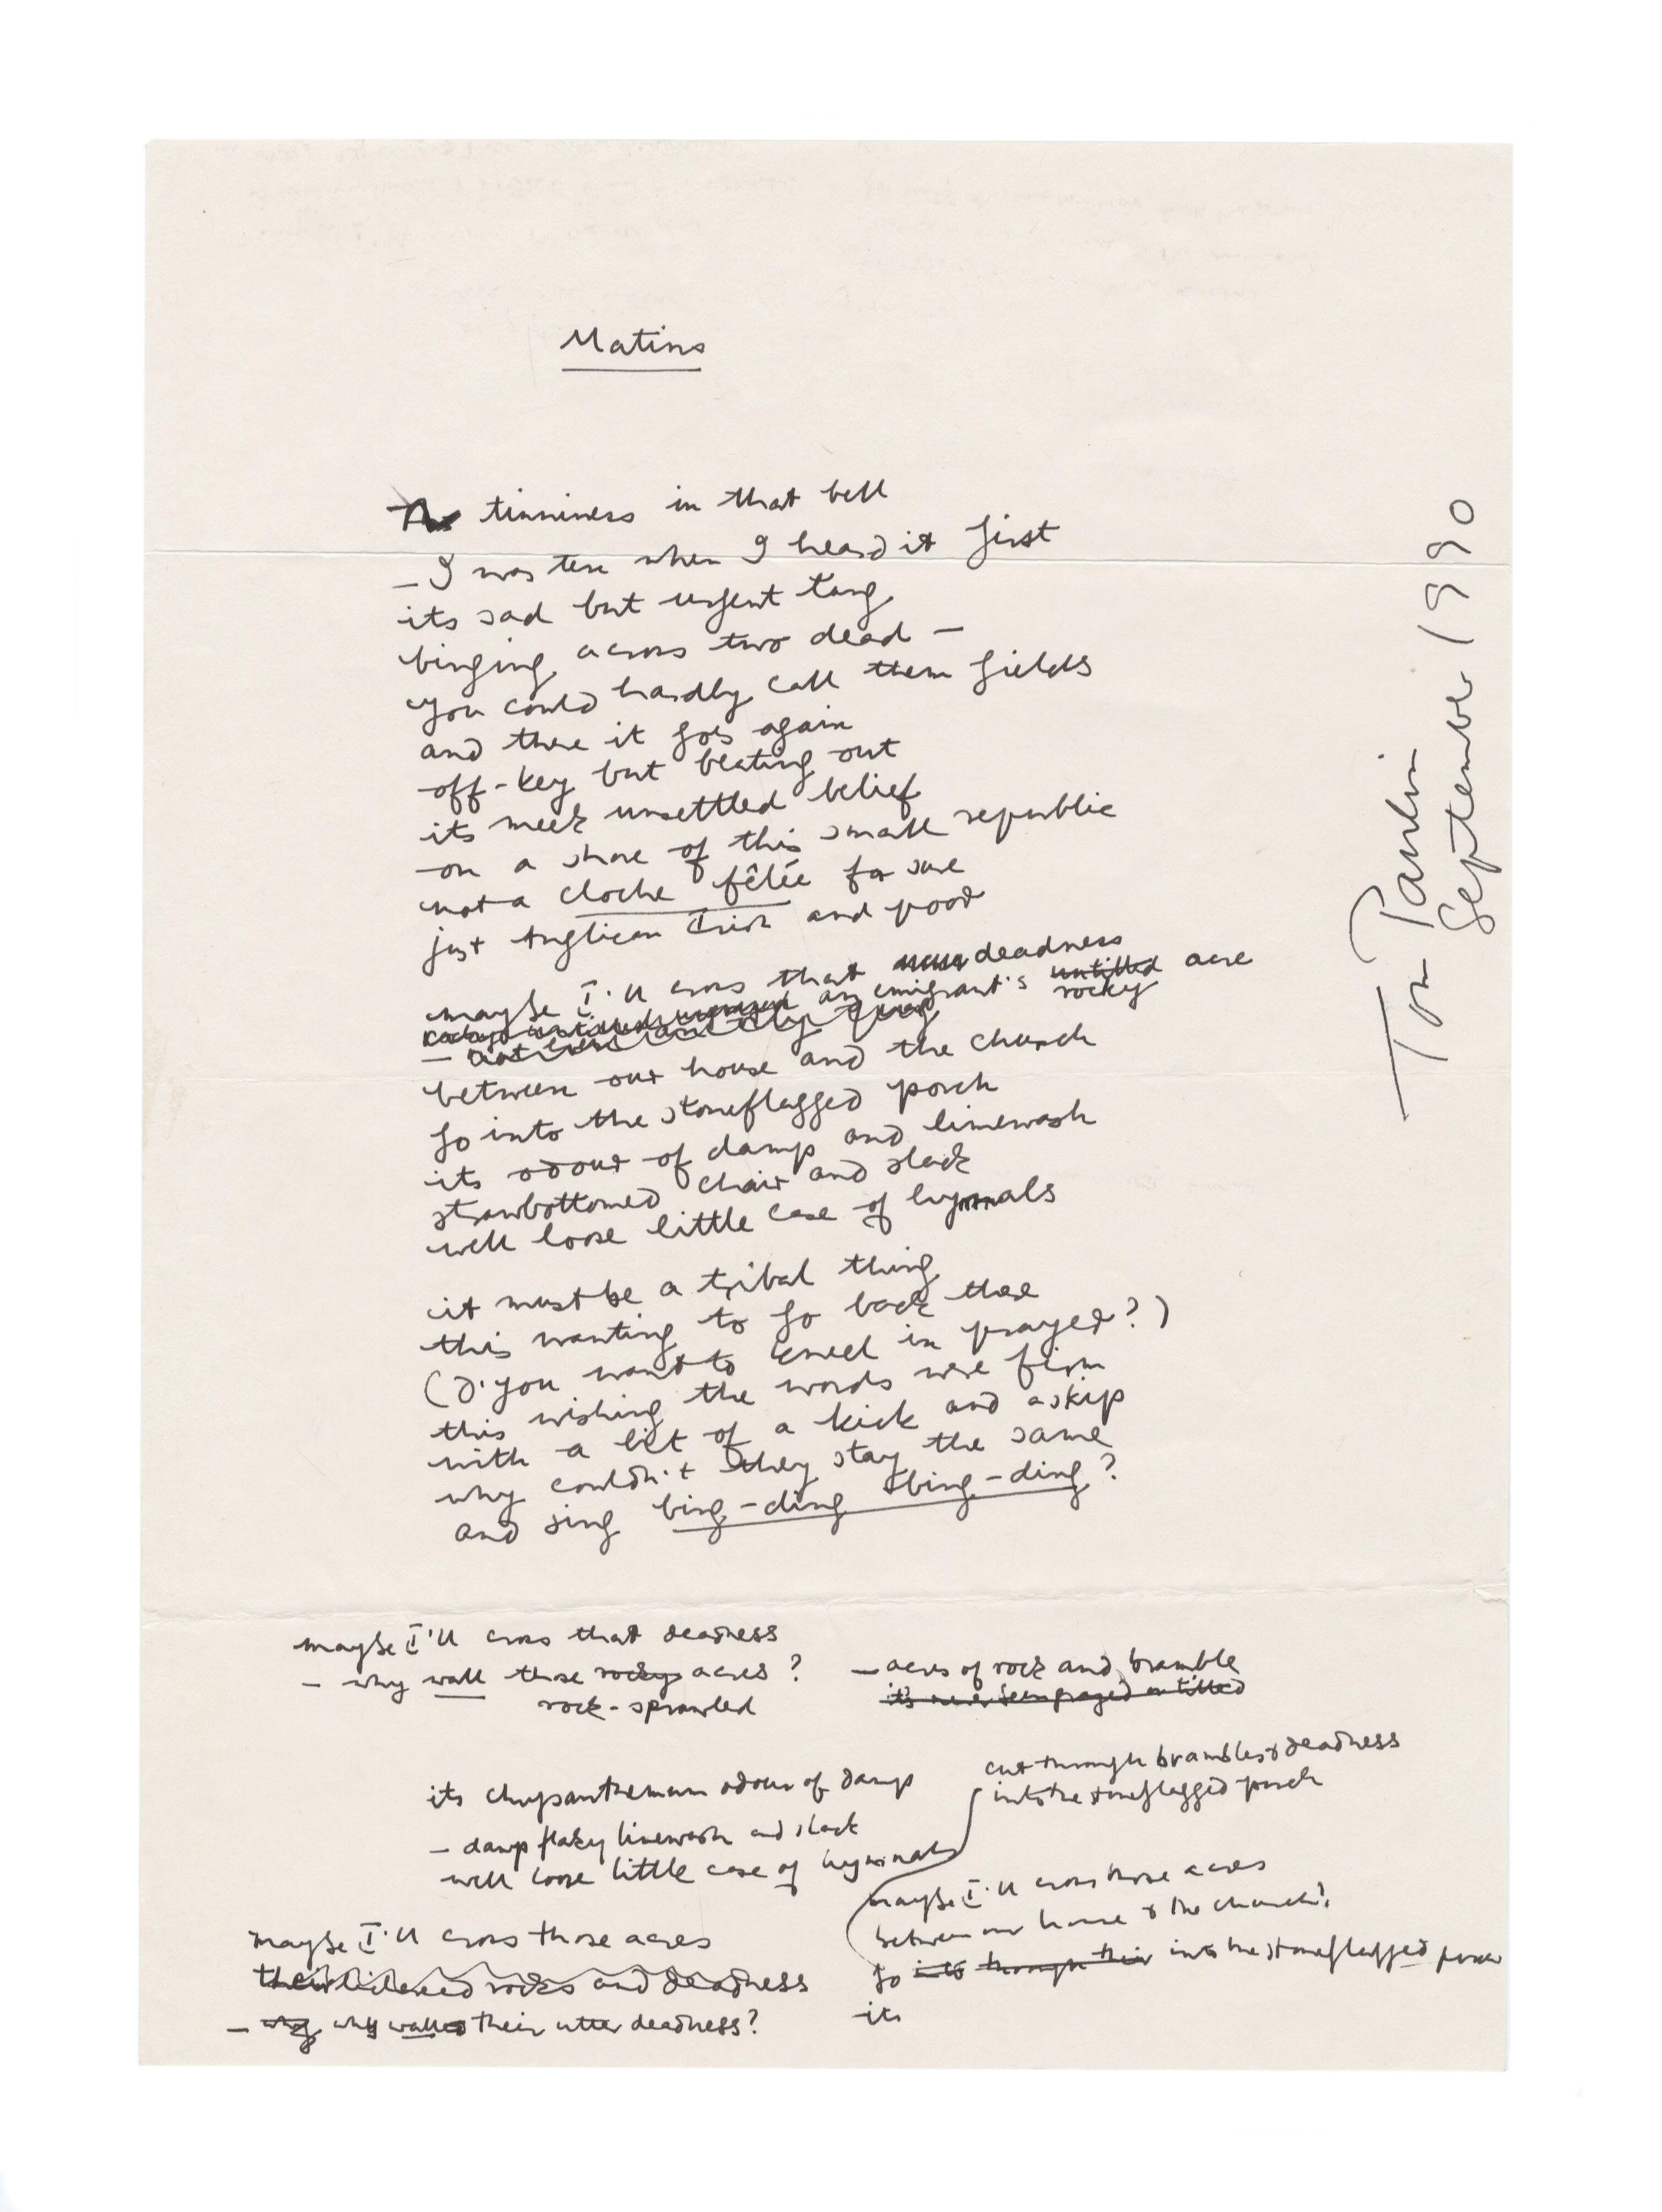 Matins
tinniness in that bell
– I was ten when I heard it first
its sad but urgent tang
binging across two dead –
you could hardly call them fields
and there it goes again
off-key but beating out
its meek unsettled belief
on a shore of this small republic
not a cloche fêlée for sure
just Anglican Irish and poor
maybe I'll cross that deadness
an emigrant's untilled acre
rocky
between our house and the church
go into the stoneflagged porch
its odour of damp and limewash
strawbottomed chair and slack
well loose little case of hymnals
it must be a tribal thing
this wanting to go back there
(d'you want to kneel in prayer?)
this wishing the words were firm
with a bit of a kick and a skip
why couldn't they stay the same
and sing bing-ding bing-ding?
Tom Paulin
September 1990
maybe I'll cross that deadness
– why wall these rocky acres?
rock-sprawled
– acres of rock and bramble
it's never been grazed or tilled
its chrysanthemum odour of damp
– damp flaky limewash and slack
well loose little case of hymnals
cut through brambles & deadness
into the stoneflagged porch
maybe I'll cross those acres
between our house & the church?
go into through their into the stoneflagged porch
its
maybe I'll cross those acres
their rocks and deadness
– why why walled their utter deadness?